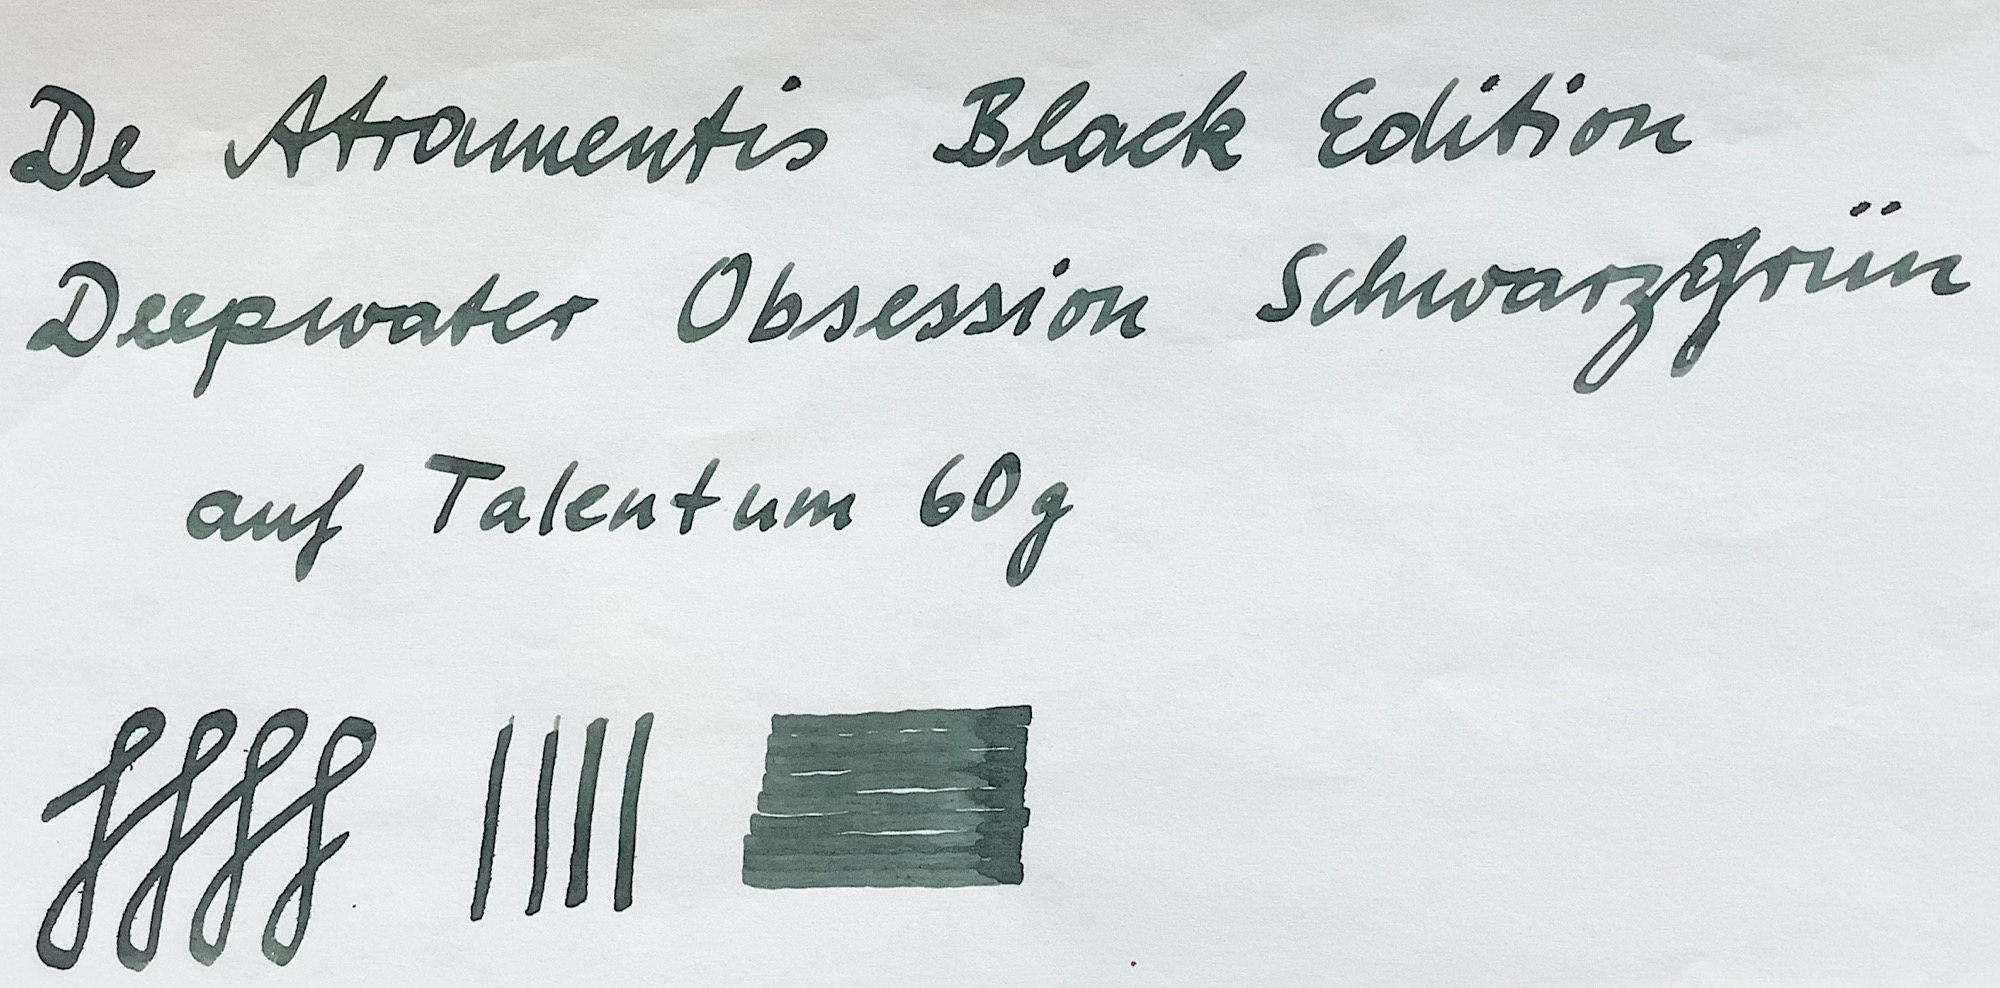 De Atramentis Black Edition
Deepwater Obsession Schwarzgrün
auf Talentum 60g